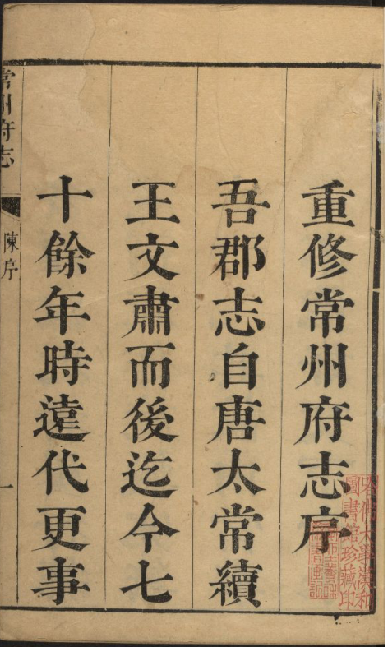 重修常州府志序
吾郡志自唐太常續
王文肅而後迄今七
十餘年時遠代更事
常州府志
陳序
一